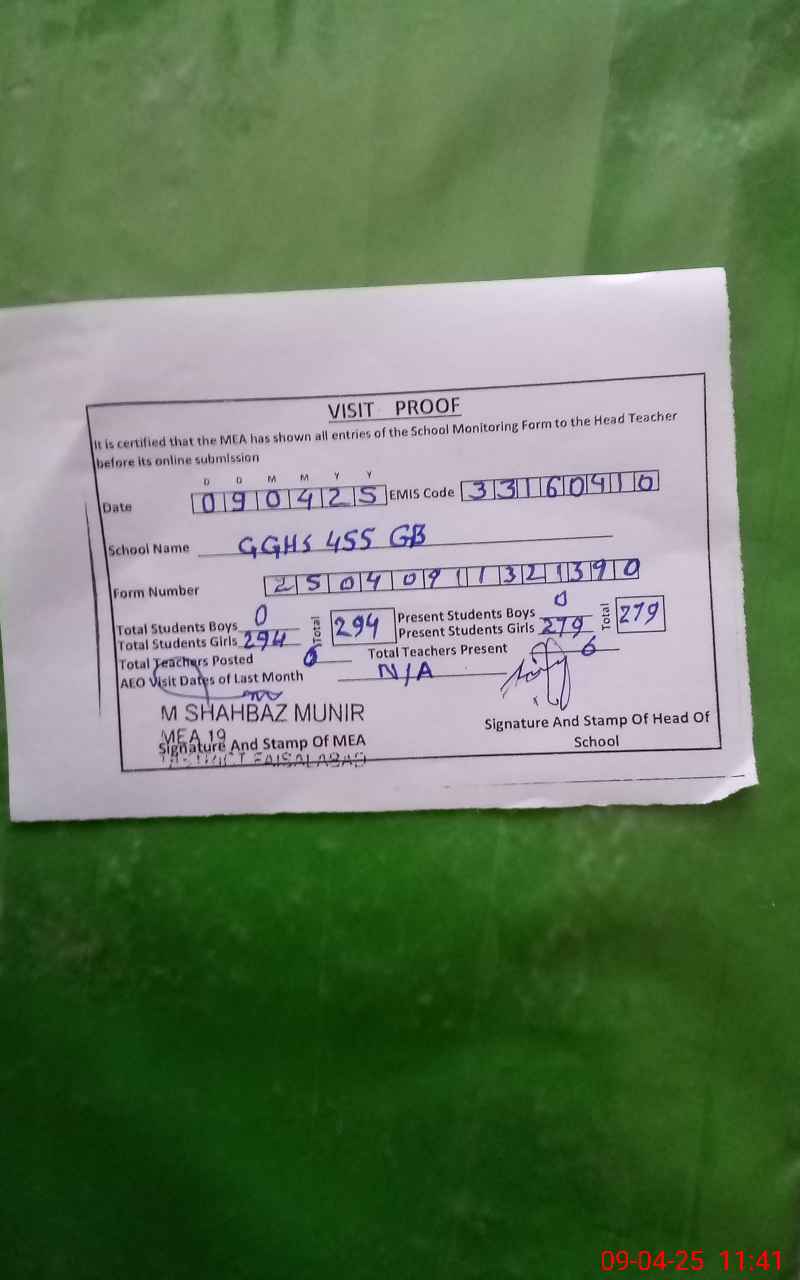 VISIT PROOF
It is certified that the MEA has shown all entries of the School Monitoring Form to the Head Teacher
before its online submission
D D M M Y Y
Date 090425 EMIS Code 33160410
School Name GGHS 455 GB
Form Number 25040911321390
Total Students Boys 0 Total 294 Present Students Boys 0 Total 279
Total Students Girls 294 Present Students Girls 279
Total Teachers Posted 6 Total Teachers Present 6
AEO Visit Dates of Last Month N/A
M SHAHBAZ MUNIR
MEA 19
Signature And Stamp Of MEA
DISTRICT FAISALABAD
Signature And Stamp Of Head Of
School
09-04-25 11:41